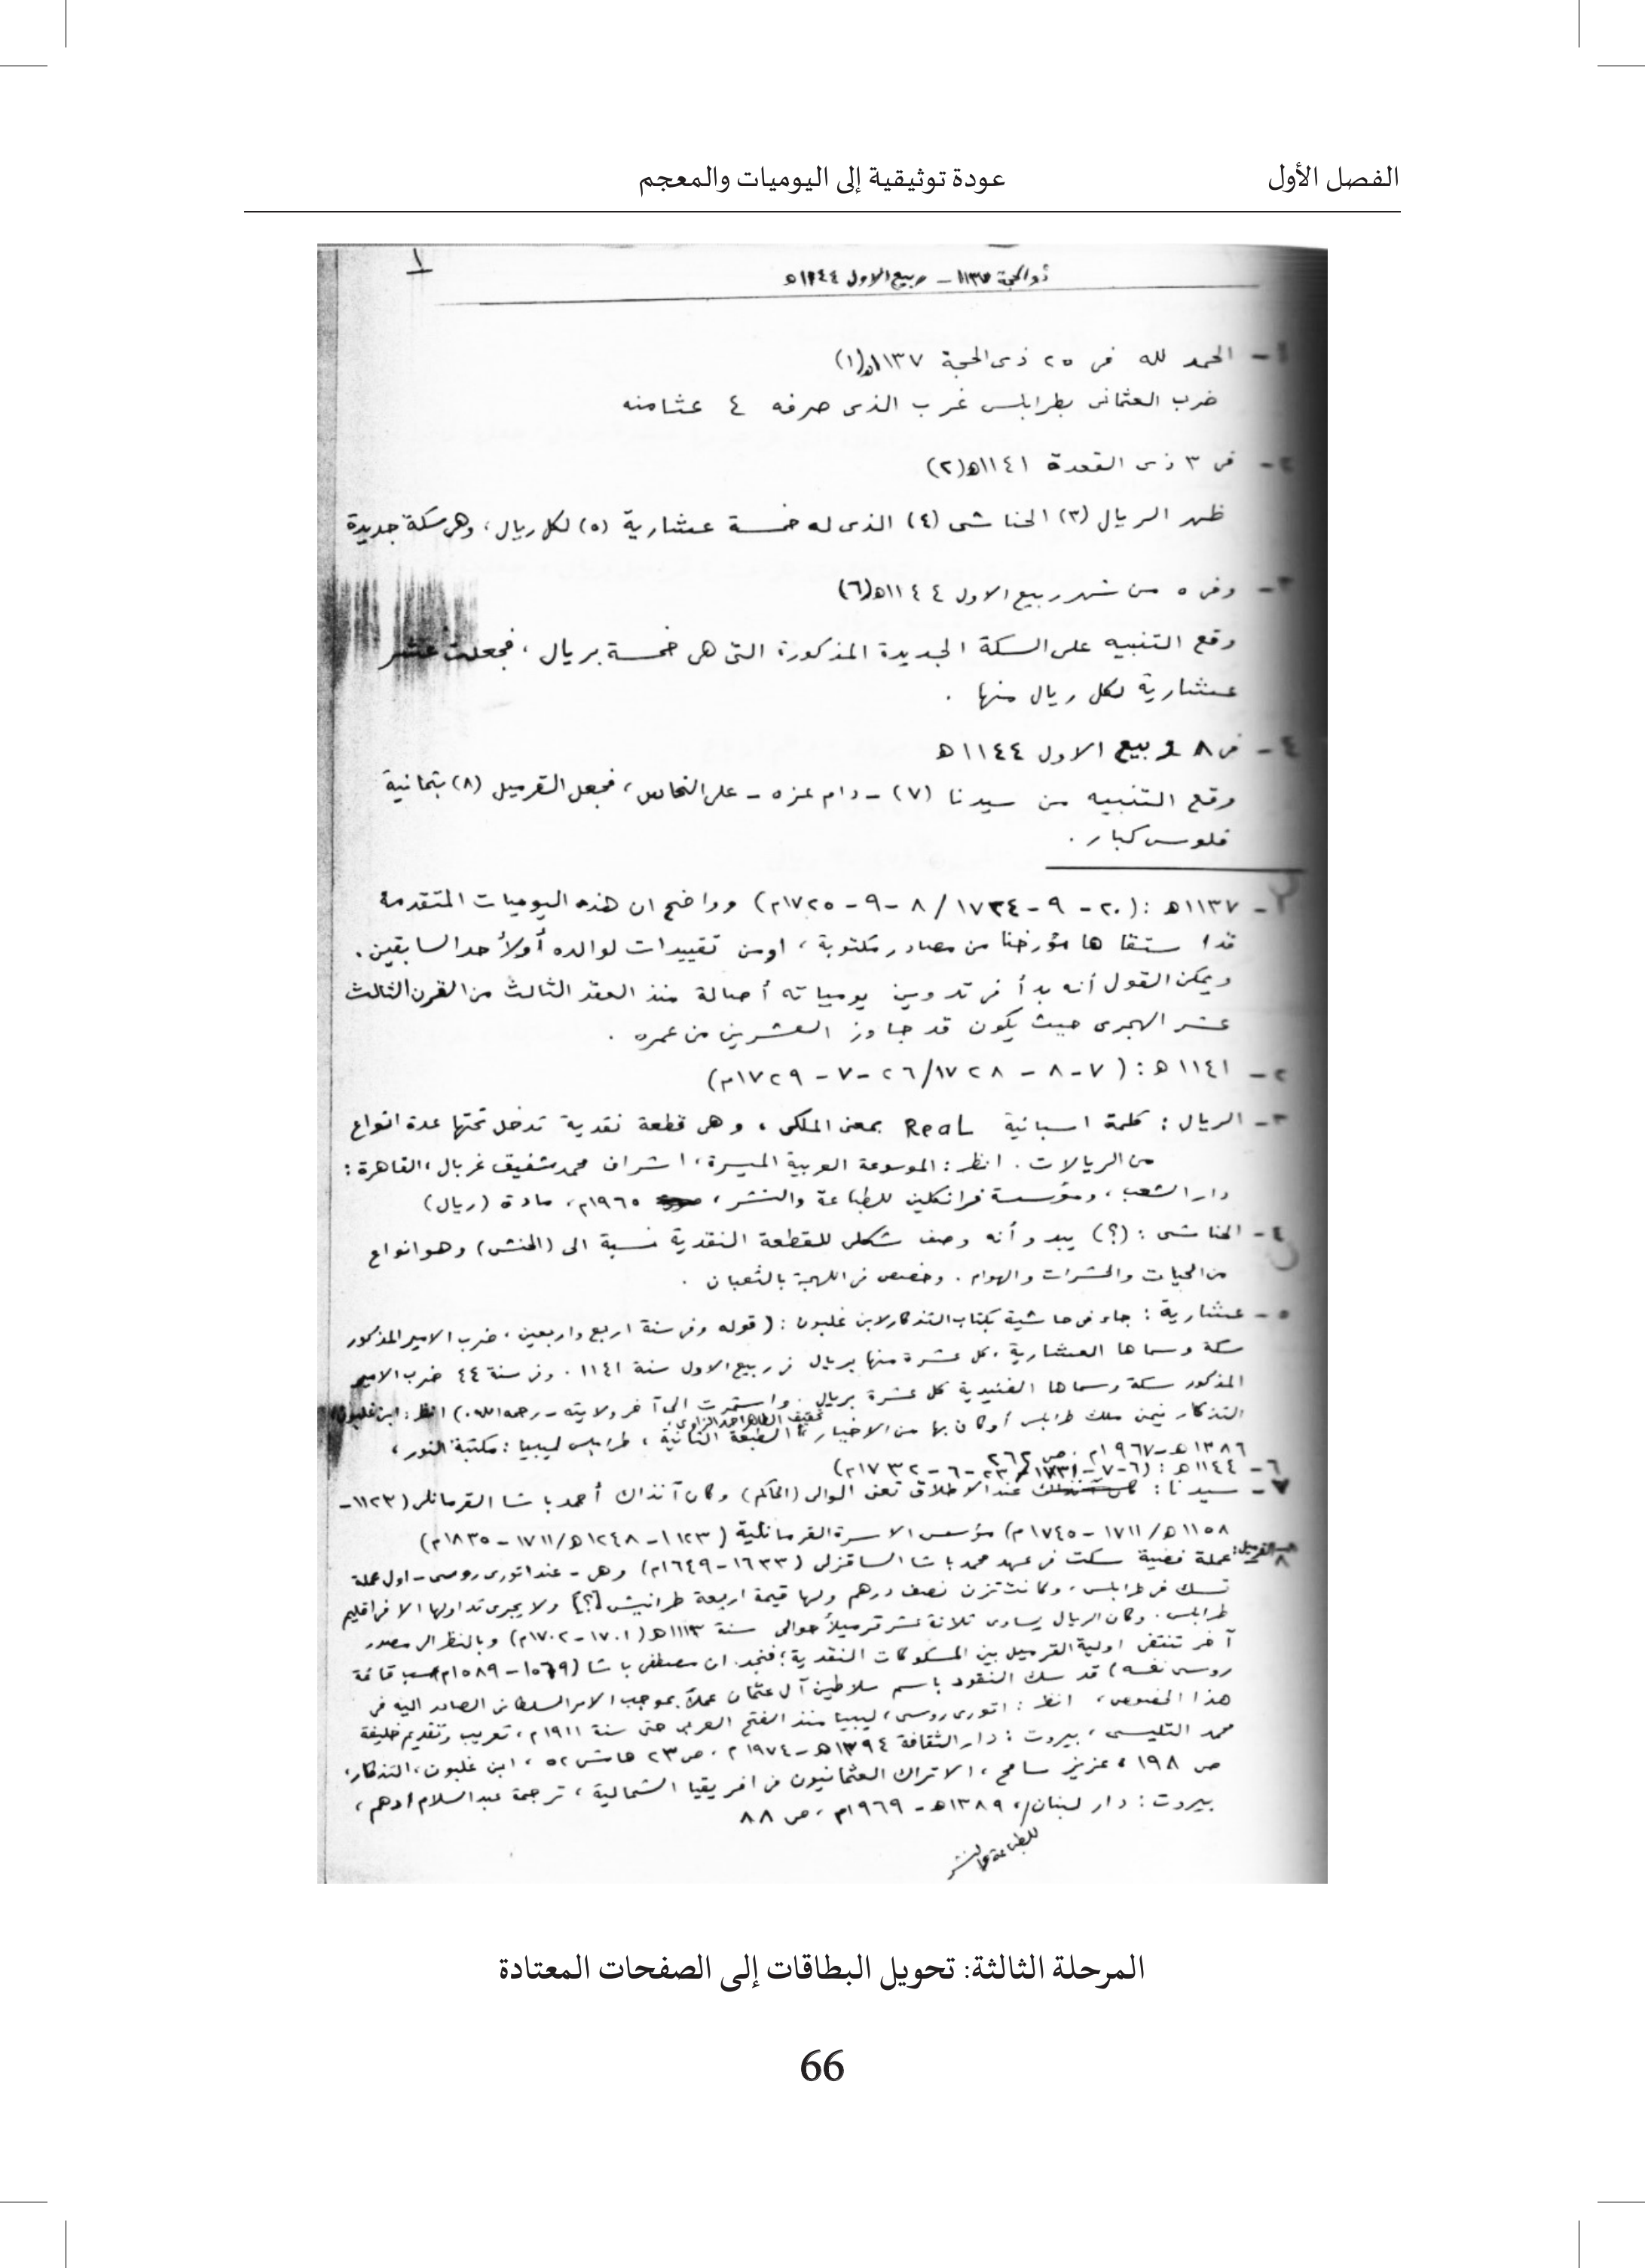 الفصل الأول
عودة توثيقية إلى اليوميات والمعجم
١
ذو الحجة ١١٣٧ - ربيع الاول ١١٤٤ه
١- الحمد لله في ٢٥ ذى الحجة ١١٣٧ه(١)
ضرب العثمانى بطرابلس غرب الذى صرفه ٤ عثامنه
٢- في ٣ ذى القعدة ١١٤١ه(٢)
ظهر الريال (٣) الحناشى (٤) الذى له خمسة عشارية (٥) لكل ريال، وهى سكة جديدة
٣- وفى ٥ من شهر ربيع الاول ١١٤٤ه(٦)
وقع التنبيه على السكة الجديدة المذكورة التى هى خمسة بريال، فجعلت عشر
عشارية لكل ريال منها .
٤- فى ٨ ربيع الاول ١١٤٤ه
وقع التنبيه من سيدنا (٧) - دام عزه - على النحاس، فجعل القرميل (٨) بثمانية
فلوس كبار .
١- ١١٣٧ه : (٢٠ - ٩ - ١٧٢٤ / ٨ - ٩ - ١٧٢٥م) وواضح ان هذه اليوميات المتقدمة
قد استقاها مؤرخنا من مصادر مكتوبة، اومن تقييدات لوالده أولأحد السابقين.
ويمكن القول أنه بدأ فى تدوين يومياته أصالة منذ العقد الثالث من القرن الثالث
عشر الهجرى حيث يكون قد جاوز العشرين من عمره .
٢- ١١٤١ه : (٧ - ٨ - ١٧٢٨/ ٢٦ - ٧ - ١٧٢٩م)
٣- الريال : كلمة اسبانية Real بمعنى الملكى، وهى قطعة نقدية تدخل تحتها عدة انواع
من الريالات. انظر : الموسوعة العربية الميسرة، اشراف محمد شفيق غربال، القاهرة :
دار الشعب، ومؤسسة فرانكلين للطباعة والنشر، ١٩٦٥م، مادة (ريال)
٤- الحناشى : (؟) يبدو أنه وصف شكلى للقطعة النقدية نسبة الى (الحنش) وهو انواع
من الحيات والحشرات والهوام. وخصص فى اللهجة بالثعبان .
٥- عشارية : جاء فى حاشية بكتاب التذكار لابن غلبون : (قوله وفى سنة اربع واربعين، ضرب الامير المذكور
سكة وسماها العشارية، كل عشرة منها بريال فى ربيع الاول سنة ١١٤١. وفى سنة ٤٤ ضرب الامير
المذكور سكة وسماها الفنيدية كل عشرة بريال. واستمرت الى آخر ولايته - رحمه الله.) انظر : ابن غلبون
التذكار فيمن ملك طرابلس أوكان بها من الاخيار، تحقيق الطاهر احمد الزاوي، الطبعة الثانية، طرابلس ليبيا : مكتبة النور،
١٣٨٦ه - ١٩٦٧م، ص ٢٦٢
٦- ١١٤٤ه : (٦ - ٧ - ١٧٣١/ ٢٣ - ٦ - ١٧٣٢م)
٧- سيدنا : عند الاطلاق تعنى الوالى (الحاكم) وكان آنذاك أحمد باشا القرمانلى (١١٢٣ -
١١٥٨ه/ ١٧١١ - ١٧٤٥م) مؤسس الاسرة القرمانلية (١١٢٣ - ١٢٤٨ه/ ١٧١١ - ١٨٣٥م)
٨- القرميل : عملة فضية سكت فى عهد محمد باشا الساقزلى (١٦٣٣ - ١٦٤٩م) وهى - عند اتورى روسى - اول عملة
تسك فى طرابلس، وكانت تزن نصف درهم ولها قيمة اربعة طرانيش [؟] ولا يجرى تداولها الا فى اقليم
طرابلس. وكان الريال يساوى ثلاثة عشر قرميلا حوالى سنة ١١١٣ه (١٧٠١ - ١٧٠٢م) وبالنظر الى مصدر
آخر تنتفى اولية القرميل بين المسكوكات النقدية؛ فنجد ان مصطفى باشا (١٥٦٩ - ١٥٨٩م) حسب قائمة
روسى نفسه) قد سك النقود باسم سلاطين آل عثمان عملا بموجب الامر السلطانى الصادر اليه فى
هذا الخصوص، انظر : اتورى روسى، ليبيا منذ الفتح العربى حتى سنة ١٩١١م، تعريب وتقديم خليفة
محمد التليسى، بيروت : دار الثقافة ١٣٩٤ه - ١٩٧٤م، ص ٢٣ هامش ٥٢، ابن غلبون، التذكار،
ص ١٩٨، عزيز سامح، الاتراك العثمانيون فى افريقيا الشمالية، ترجمة عبد السلام ادهم،
بيروت : دار لبنان، ١٣٨٩ه - ١٩٦٩م، ص ٨٨
للطباعة والنشر
المرحلة الثالثة: تحويل البطاقات إلى الصفحات المعتادة
66